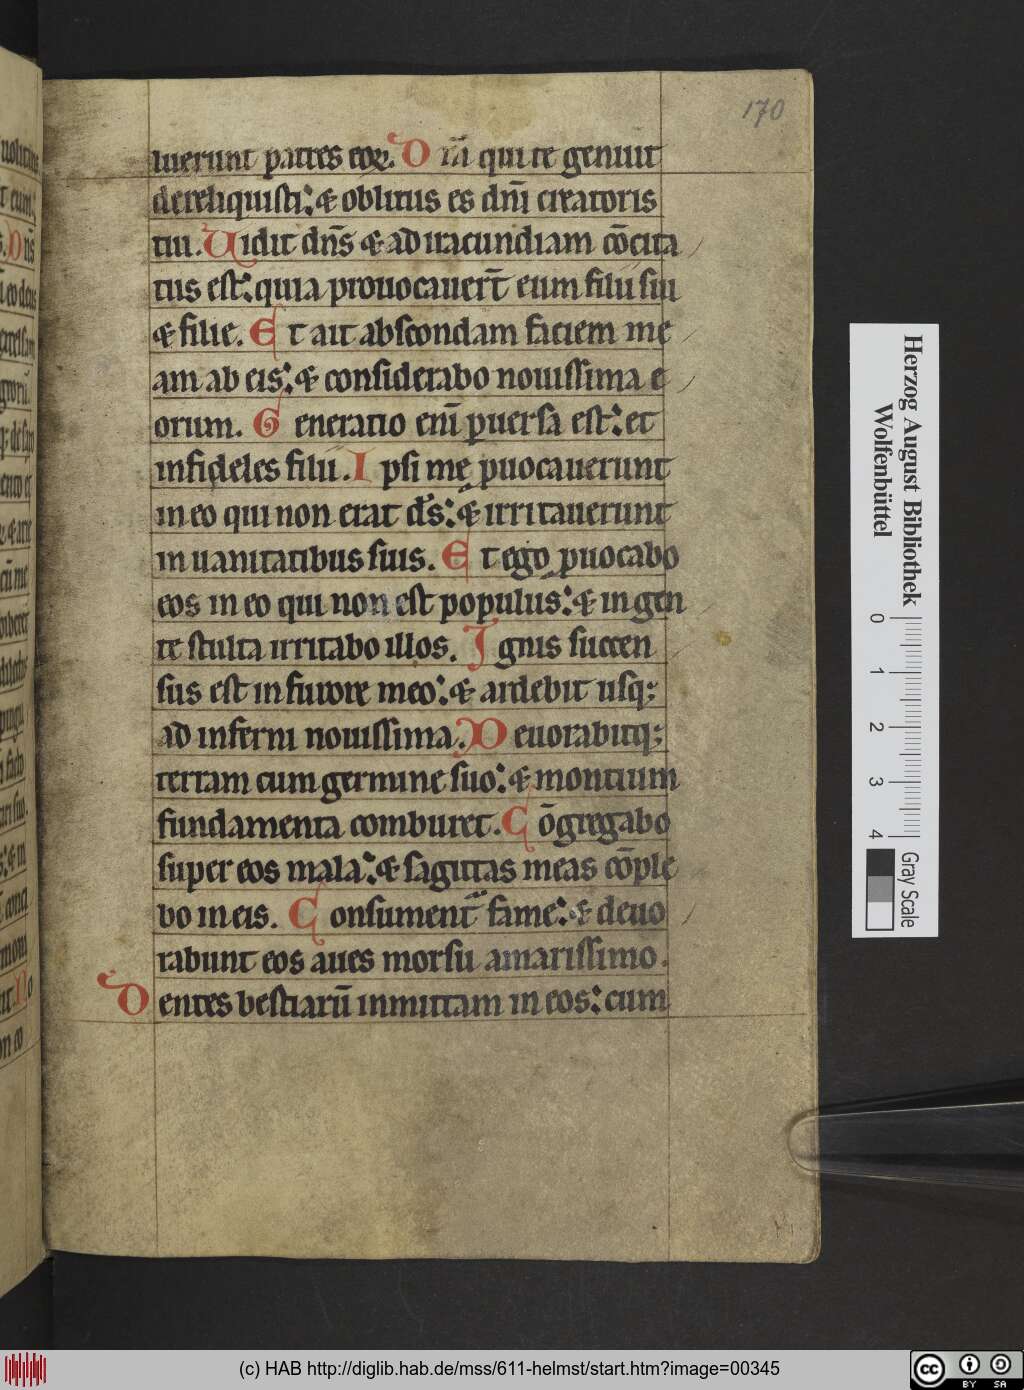 170
luerunt patres eoꝝ. D m̄ qui te genuit
dereliquisti: & oblitus es dn̄i creatoris
tui. Uidit dn̄s & ad iracundiam cōcita
tus est: quia prouocauer̄t eum filii sui
& filie. E t ait abscondam faciem me
am ab eis: & considerabo nouissima e
orum. G eneratio eni̅ ꝑuersa est: et
infideles filii. I psi mę ꝓuocauerunt
in eo qui non erat d's: & irritauerunt
in uanitatibus suis. E t ego ꝓuocabo
eos in eo qui non est populus: & in gen
te stulta irritabo illos. I gnis succen
sus est in furore meo: & ardebit usq;
ad inferni nouissima. D euorabitq;
terram cum germine suo: & montium
fundamenta comburet. C ōgregabo
super eos mala: & sagittas meas cōple
bo in eis. C onsument̄ fame: & deuo
rabunt eos aues morsu amarissimo.
D entes bestiarū inmittam in eos: cum
Herzog August Bibliothek
Wolfenbüttel
0 1 2 3 4
Gray Scale
(c) HAB http://diglib.hab.de/mss/611-helmst/start.htm?image=00345
cc BY SA